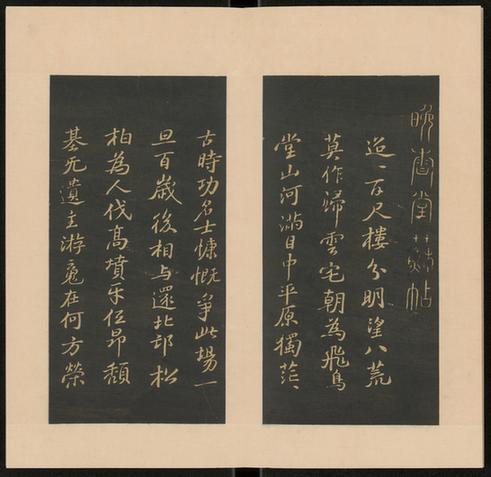 晚香堂蘇帖
迢〻百尺樓分明望八荒
莫作歸雲宅朝為飛鳥
堂山河滿目中平原獨茫〻
古時功名士慷慨爭此場一
旦百歲後相与還北邙松
柏為人伐高墳互低昂頹
基无遺主游魂在何方榮